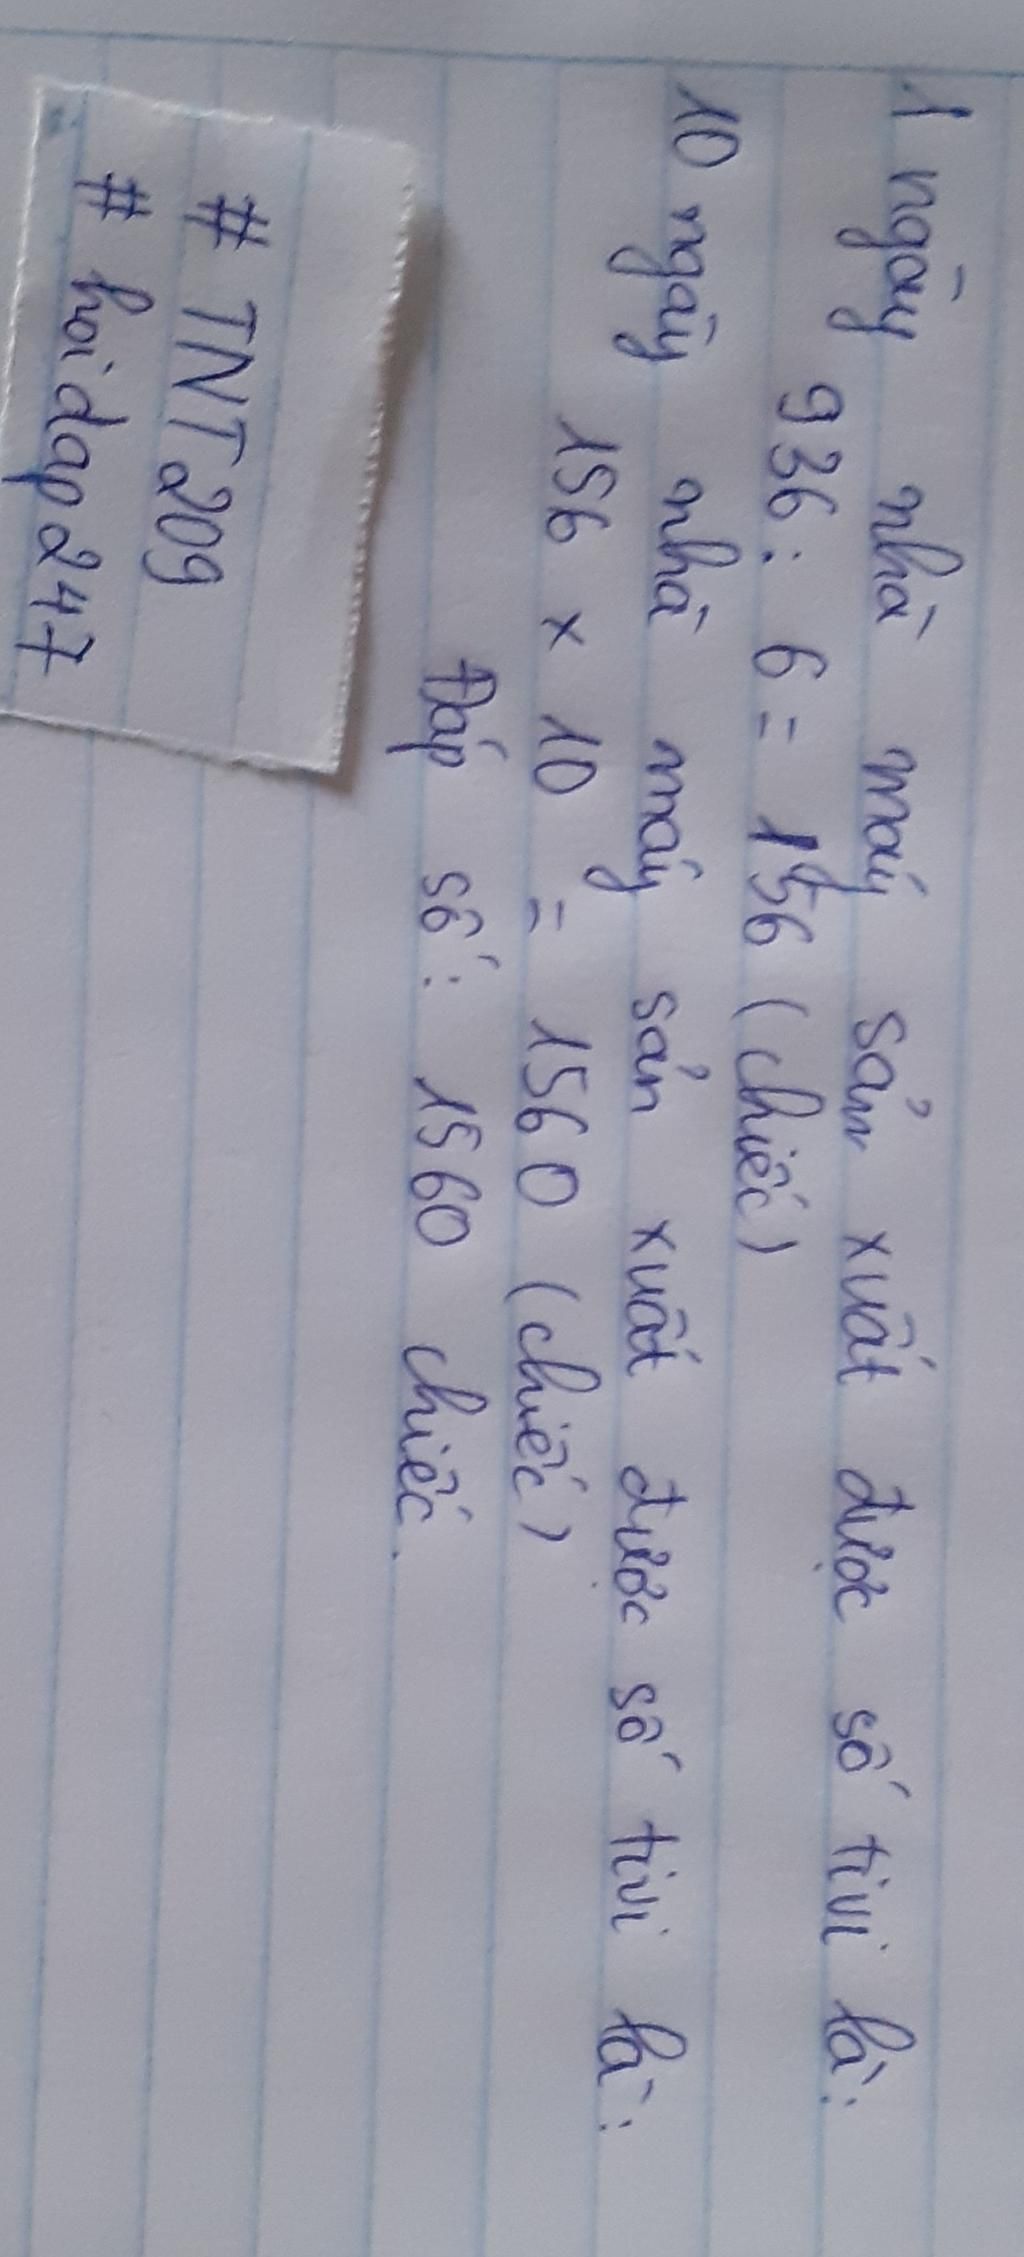 1 ngày nhà máy sản xuất được số tivi là:
936 : 6 = 156 (chiếc)
10 ngày nhà máy sản xuất được số tivi là:
156 x 10 = 1560 (chiếc)
Đáp số: 1560 chiếc.
# TNT209
# hoidap247